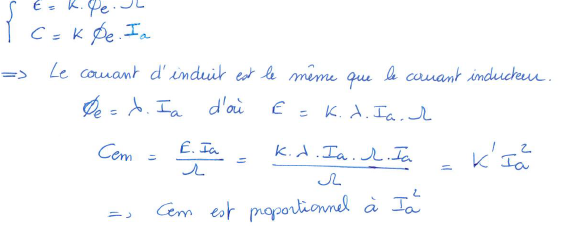 E = K.Φe.Ω
C = K Φe.Ia
=> Le courant d'induit est le même que le courant inducteur.
Φe = λ.Ia d'où E = K.λ.Ia.Ω
Cem = E.Ia/Ω = K.λ.Ia.Ω.Ia/Ω = K'Ia²
=> Cem est proportionnel à Ia²